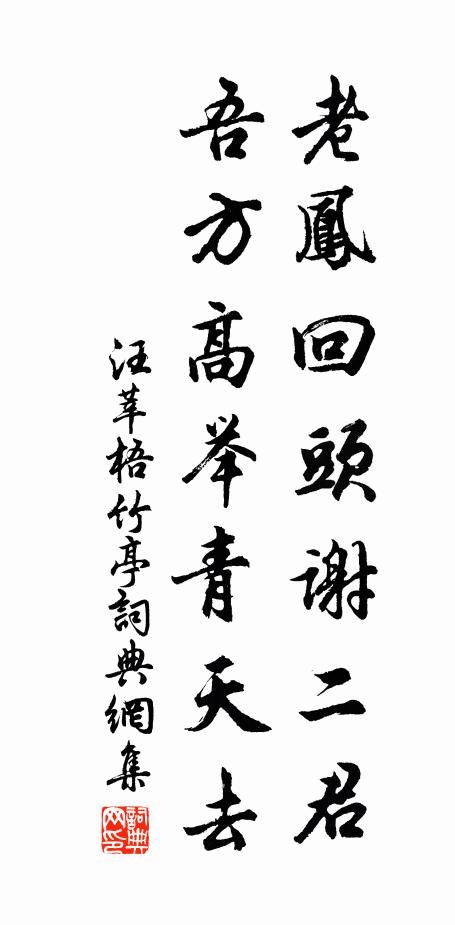 老鳳回頭謝二君
吾方高举青天去
汪莘梧竹亭詞典網集
詞典网印